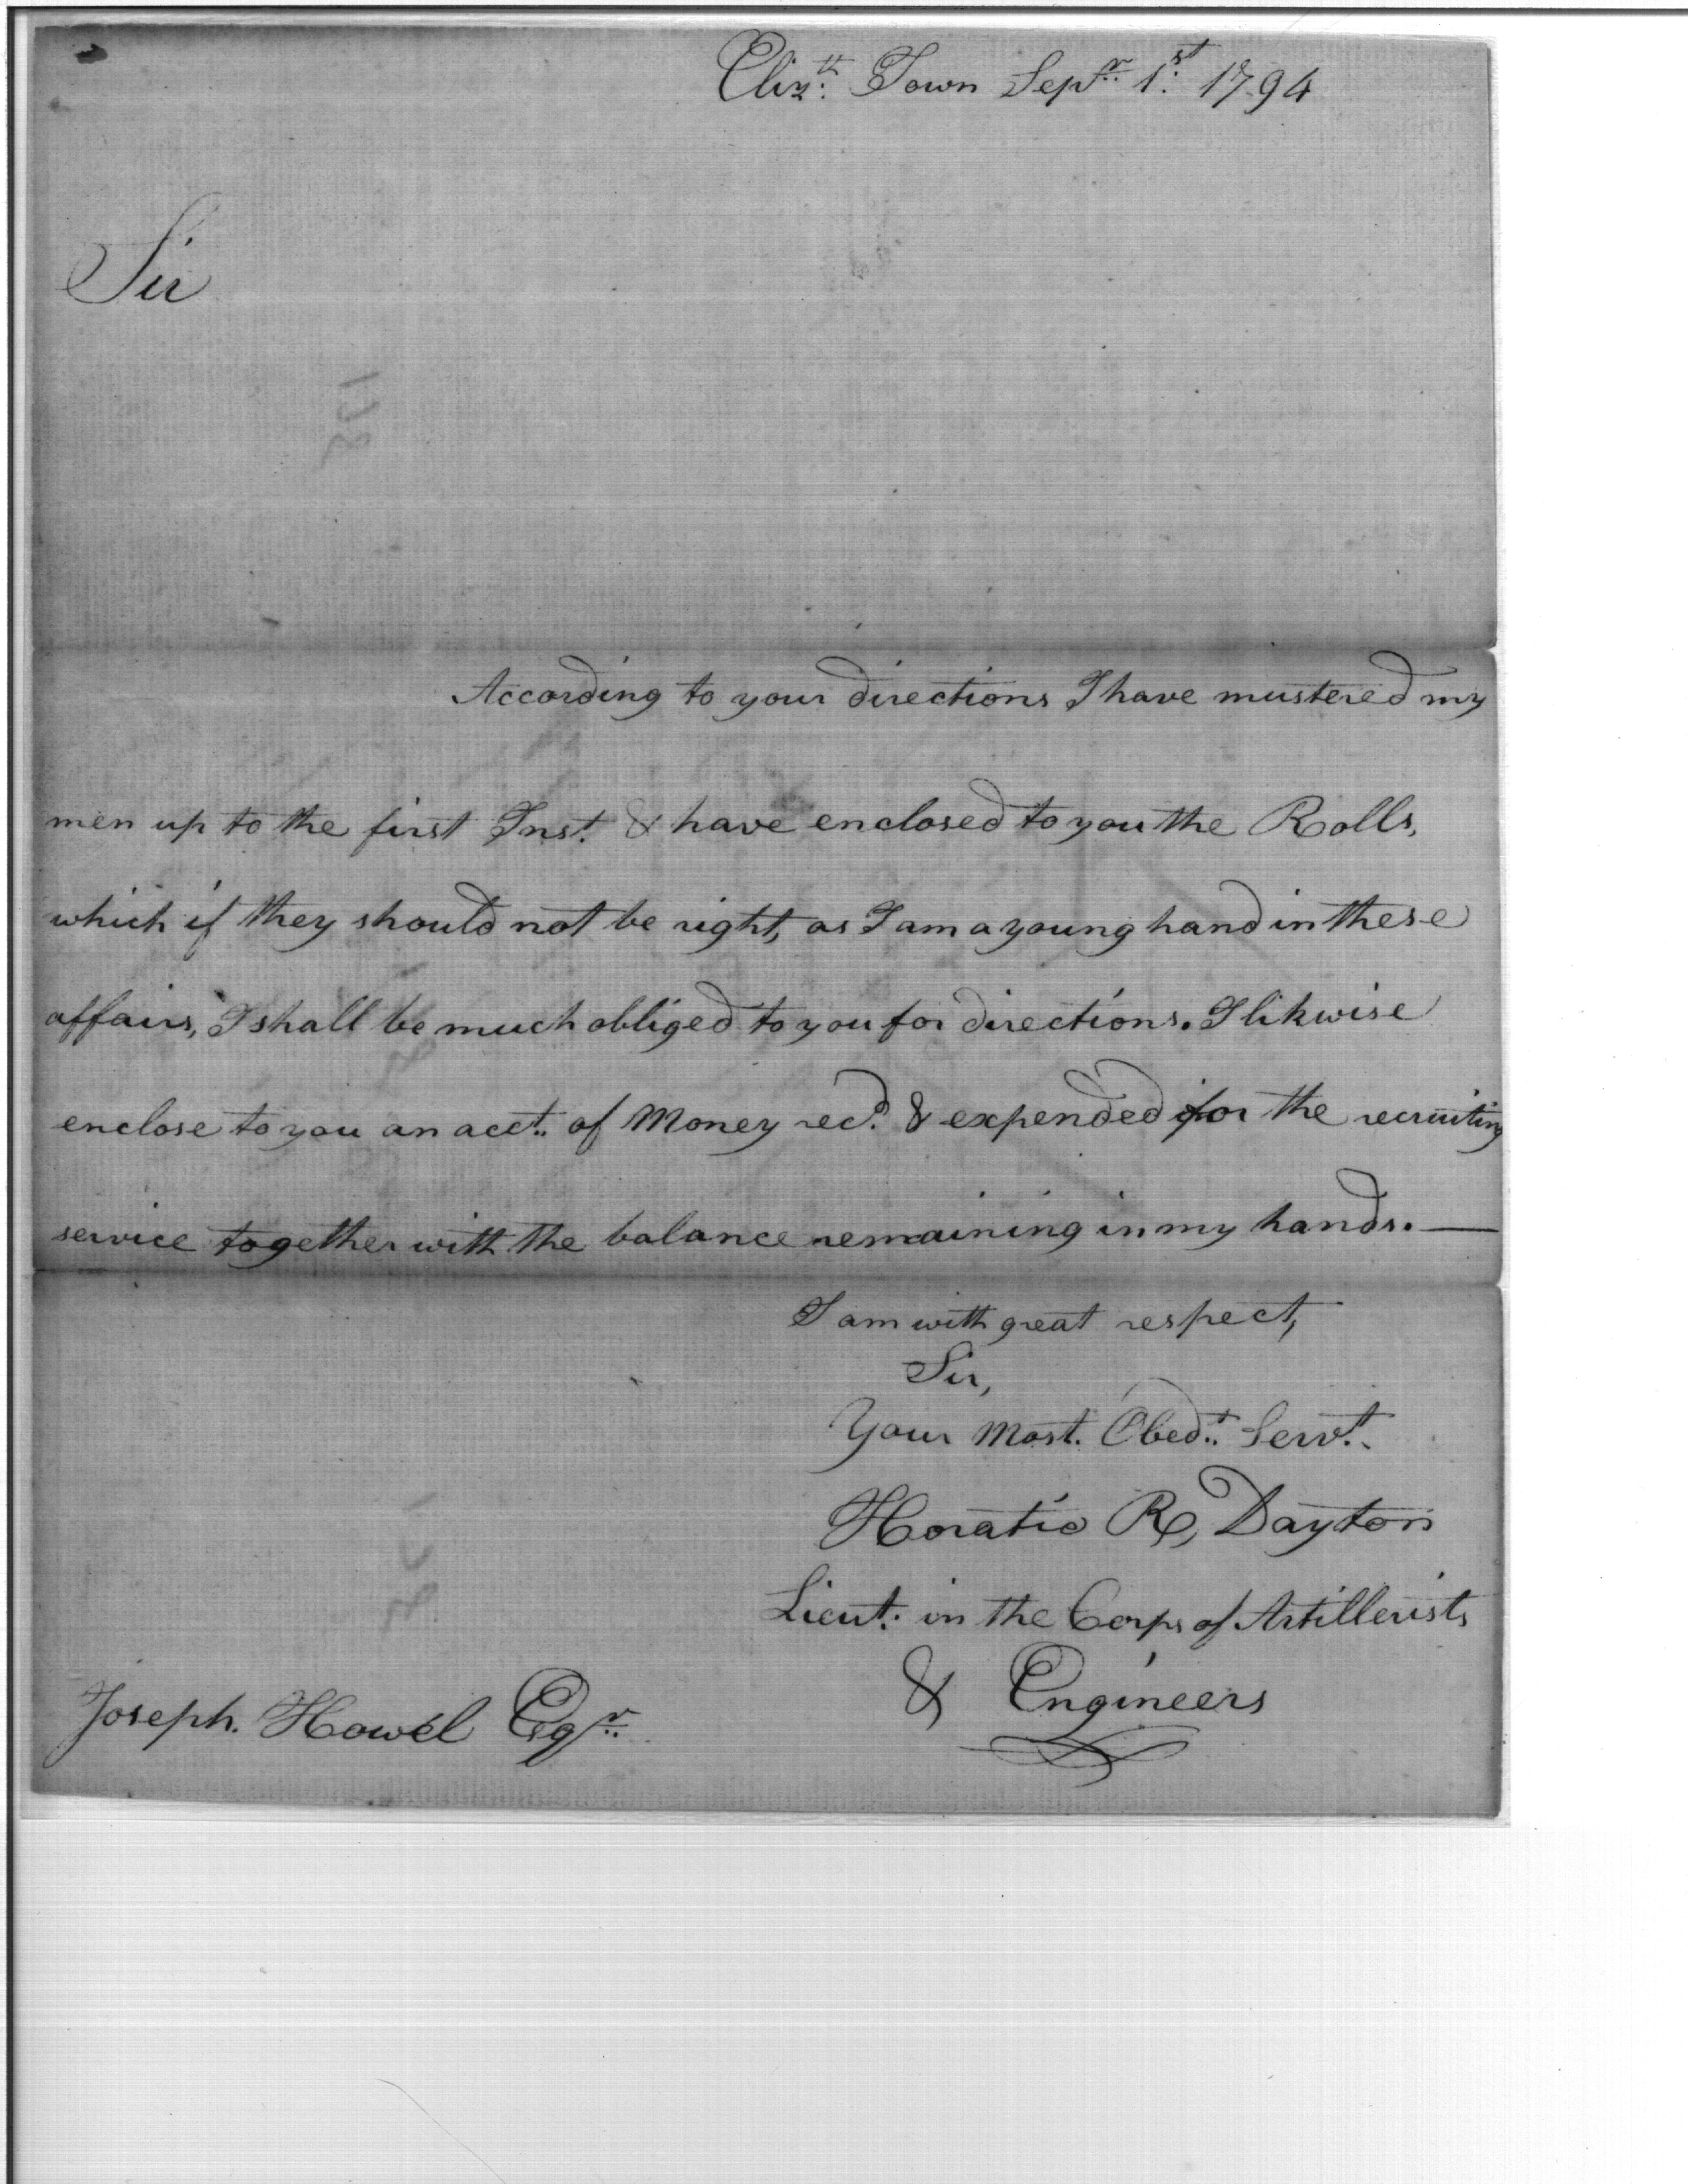 Elizth. Town Sepr. 1st. 1794
Sir
According to your directions I have mustered my
men up to the first Inst. & have enclosed to you the Rolls,
which if they should not be right, as I am a young hand in these
affairs, I shall be much obliged to you for directions. I likwise
enclose to you an acct. of Money recd. & expended for the recruiting
service together with the balance remaining in my hands. —
I am with great respect,
Sir,
Your Most. Obedt. Servt.
Horatio R, Dayton
Lieut. in the Corps of Artillerists
& Engineers
Joseph. Howel Esqr.